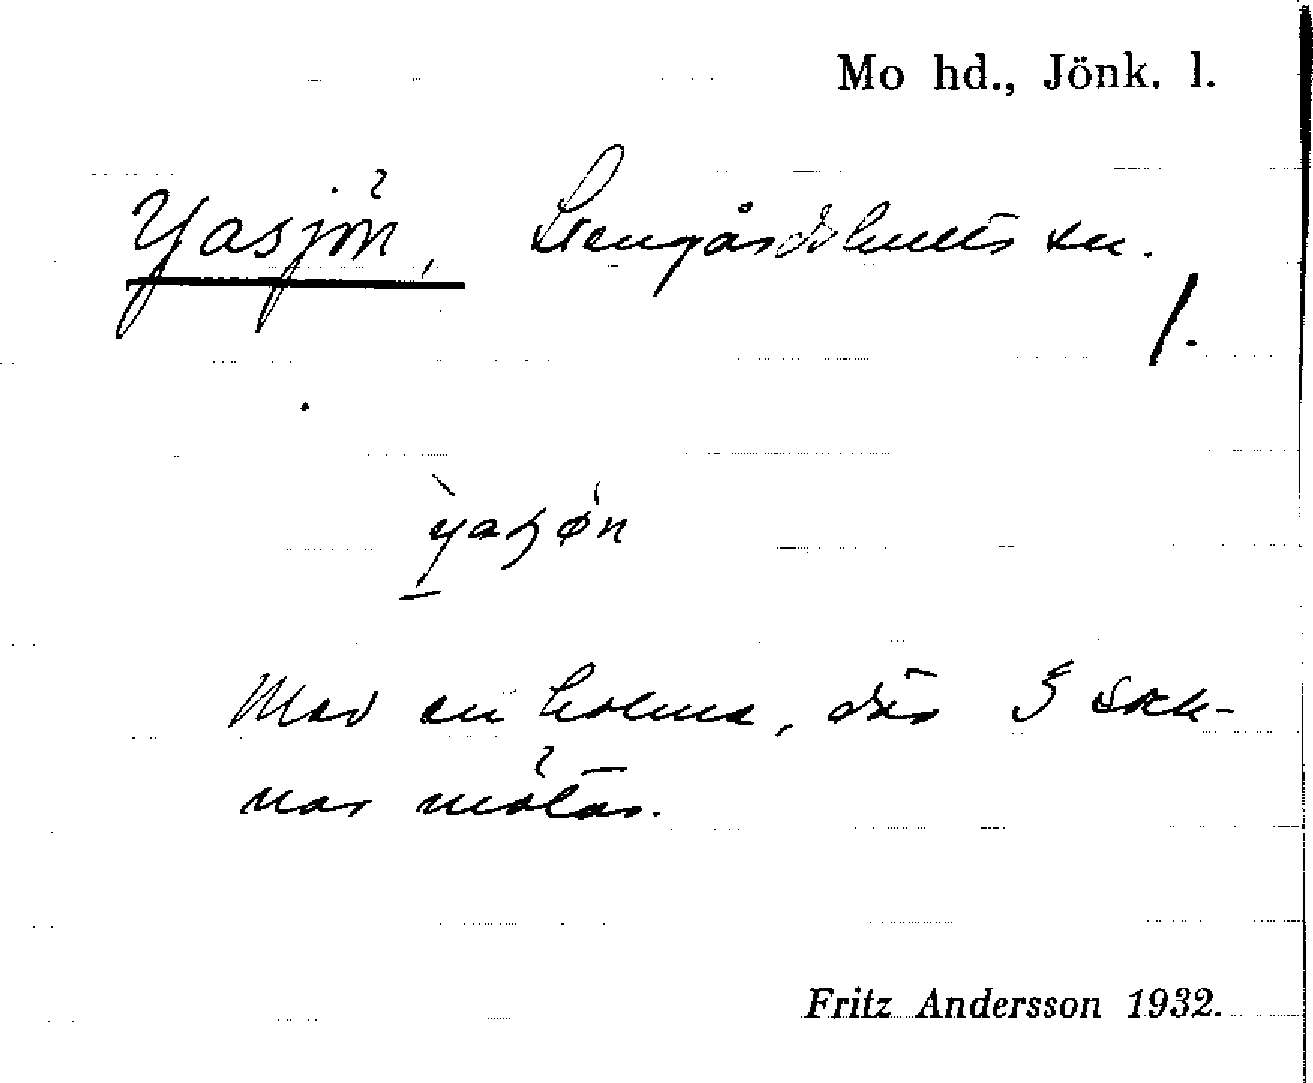 Mo hd., Jönk. l.
Yasjön, Stengårdshults sn.
/.
ỳaʂø̀n
Med en holme, där 3 sock-
nar mötas.
Fritz Andersson 1932.